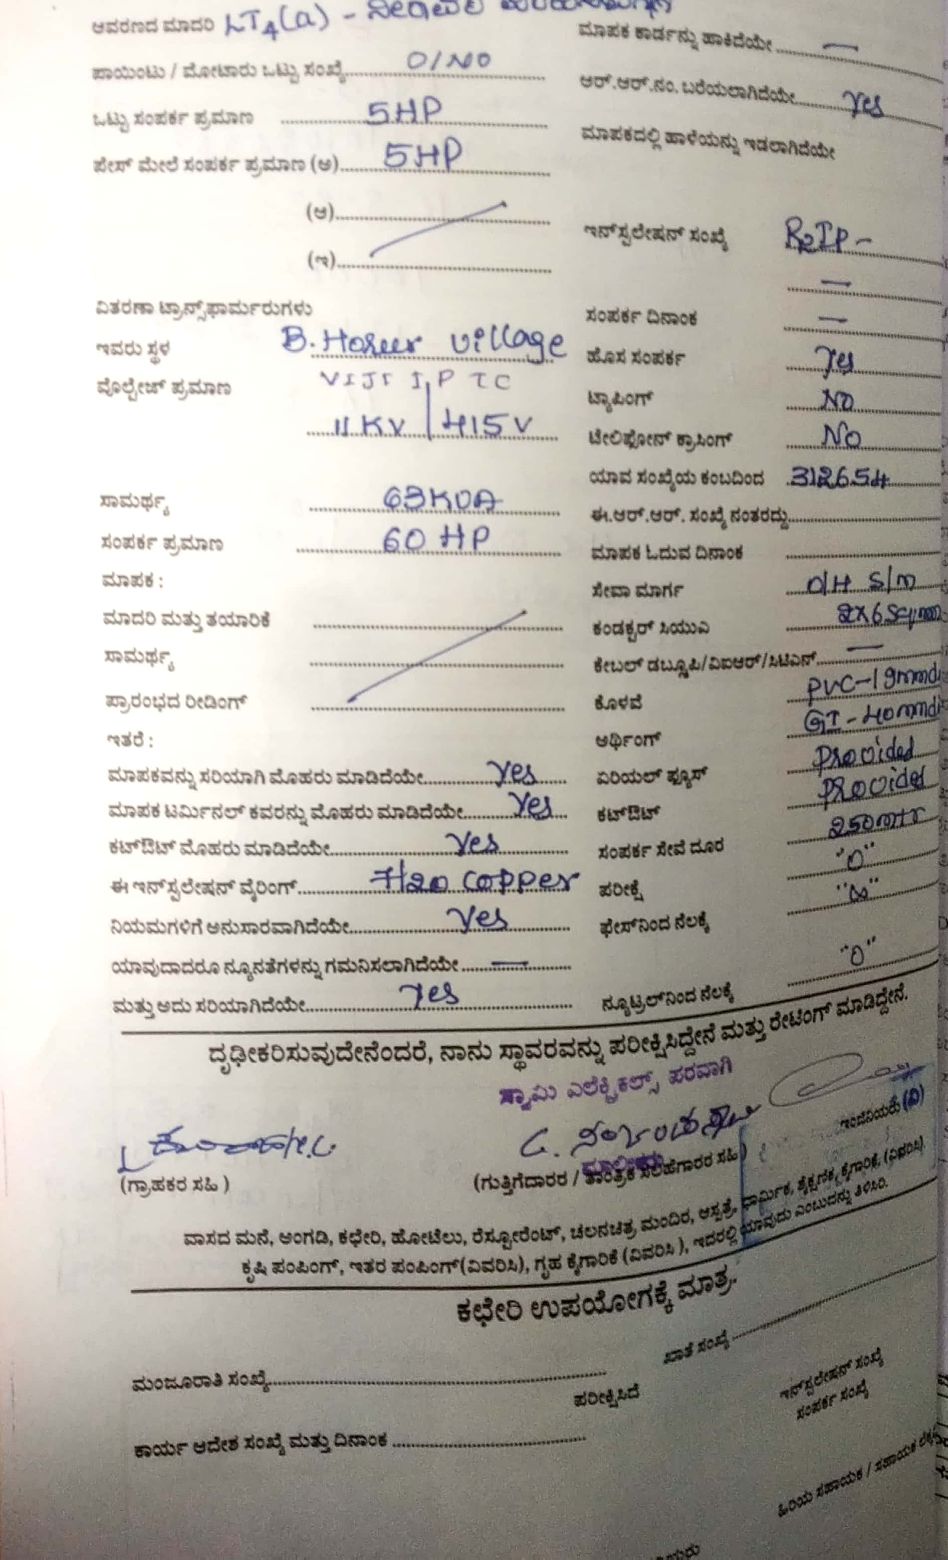 ಆವರಣದ ಮಾದರಿ LT4(a) - ನೀರಾವರಿ
ಮಾಪಕ ಕಾರ್ಡನ್ನು ಹಾಕಿದೆಯೇ ........ —
ಪಾಯಿಂಟು / ಮೋಟಾರು ಒಟ್ಟು ಸಂಖ್ಯೆ........ 01 NO
ಆರ್.ಆರ್.ನಂ. ಬರೆಯಲಾಗಿದೆಯೇ........ Yes
ಒಟ್ಟು ಸಂಪರ್ಕ ಪ್ರಮಾಣ ........ 5HP
ಮಾಪಕದಲ್ಲಿ ಹಾಳೆಯನ್ನು ಇಡಲಾಗಿದೆಯೇ
ಫೇಸ್ ಮೇಲೆ ಸಂಪರ್ಕ ಪ್ರಮಾಣ (ಅ)........ 5HP
(ಆ)........
ಇನ್‌ಸ್ಟಲೇಷನ್ ಸಂಖ್ಯೆ
(ಇ)........
ವಿತರಣಾ ಟ್ರಾನ್ಸ್‌ಫಾರ್ಮರುಗಳು
ಸಂಪರ್ಕ ದಿನಾಂಕ —
ಇವರು ಸ್ಥಳ B. Hosur village
ಹೊಸ ಸಂಪರ್ಕ Yes
ವೊಲ್ಟೇಜ್ ಪ್ರಮಾಣ VIJI I.P TC
11 KV | 415 V
ಟ್ಯಾಪಿಂಗ್ NO
ಟೇಲಿಫೋನ್ ಕ್ರಾಸಿಂಗ್ NO
ಯಾವ ಸಂಖ್ಯೆಯ ಕಂಬದಿಂದ 312654
ಸಾಮರ್ಥ್ಯ 63 KVA
ಈ.ಆರ್.ಆರ್. ಸಂಖ್ಯೆ ನಂತರದ್ದು........
ಸಂಪರ್ಕ ಪ್ರಮಾಣ 60 HP
ಮಾಪಕ ಓದುವ ದಿನಾಂಕ
ಮಾಪಕ :
ಸೇವಾ ಮಾರ್ಗ O/H S/m
ಮಾದರಿ ಮತ್ತು ತಯಾರಿಕೆ
ಕಂಡಕ್ಟರ್ ಸಿಯುಎ 2X6 Sqmm
ಸಾಮರ್ಥ್ಯ
ಕೇಬಲ್ ಡಬ್ಲೂಪಿ/ವಿಐಆರ್/ಸಿಟಿಎಸ್........ —
ಪ್ರಾರಂಭದ ರೀಡಿಂಗ್
ಕೊಳವೆ PVC-19mmdi
ಇತರೆ :
ಆರ್ಥಿಂಗ್ GI-40mmdi
ಮಾಪಕವನ್ನು ಸರಿಯಾಗಿ ಮೊಹರು ಮಾಡಿದೆಯೇ........ Yes
ಏರಿಯಲ್ ಫ್ಯೂಸ್ Provided
ಮಾಪಕ ಟರ್ಮಿನಲ್ ಕವರನ್ನು ಮೊಹರು ಮಾಡಿದೆಯೇ........ Yes
ಕಟ್‌ಔಟ್ Provided
ಕಟ್‌ಔಟ್ ಮೊಹರು ಮಾಡಿದೆಯೇ........ Yes
ಸಂಪರ್ಕ ಸೇವೆ ದೂರ 250mtr
ಈ ಇನ್‌ಸ್ಟಲೇಷನ್ ವೈರಿಂಗ್........ 7/20 Copper
ಪರೀಕ್ಷೆ "0"
ನಿಯಮಗಳಿಗೆ ಅನುಸಾರವಾಗಿದೆಯೇ........ Yes
ಫೇಸ್‌ನಿಂದ ನೆಲಕ್ಕೆ "∞"
ಯಾವುದಾದರೂ ನ್ಯೂನತೆಗಳನ್ನು ಗಮನಿಸಲಾಗಿದೆಯೇ........ —
ಮತ್ತು ಅದು ಸರಿಯಾಗಿದೆಯೇ........ Yes
ನ್ಯೂಟ್ರಲ್‌ನಿಂದ ನೆಲಕ್ಕೆ "0"
ದೃಢೀಕರಿಸುವುದೇನೆಂದರೆ, ನಾನು ಸ್ಥಾವರವನ್ನು ಪರೀಕ್ಷಿಸಿದ್ದೇನೆ ಮತ್ತು ರೇಟಿಂಗ್ ಮಾಡಿದ್ದೇನೆ.
ಸ್ವಾಮಿ ಎಲೆಕ್ಟ್ರಿಕಲ್ಸ್ ಪರವಾಗಿ
ಮಾಲೀಕರು
ಇಂಜಿನಿಯರು (ವಿ)
(ಗ್ರಾಹಕರ ಸಹಿ )
(ಗುತ್ತಿಗೆದಾರರ / ತಾಂತ್ರಿಕ ಸಲಹೆಗಾರರ ಸಹಿ )
ವಾಸದ ಮನೆ, ಅಂಗಡಿ, ಕಛೇರಿ, ಹೋಟೆಲು, ರೆಸ್ಟೋರೆಂಟ್, ಚಲನಚಿತ್ರ ಮಂದಿರ, ಆಸ್ಪತ್ರೆ, ಧಾರ್ಮಿಕ, ಶೈಕ್ಷಣಿಕ, ಕೈಗಾರಿಕೆ, (ವಿವರಿಸಿ)
ಕೃಷಿ ಪಂಪಿಂಗ್, ಇತರ ಪಂಪಿಂಗ್(ವಿವರಿಸಿ), ಗೃಹ ಕೈಗಾರಿಕೆ (ವಿವರಿಸಿ ), ಇದರಲ್ಲಿ ಯಾವುದು ಎಂಬುದನ್ನು ತಿಳಿಸಿರಿ.
ಕಛೇರಿ ಉಪಯೋಗಕ್ಕೆ ಮಾತ್ರ.
ಮಂಜೂರಾತಿ ಸಂಖ್ಯೆ........
ಖಾತೆ ಸಂಖ್ಯೆ ........
ಪರೀಕ್ಷಿಸಿದೆ
ಇನ್‌ಸ್ಟಲೇಷನ್ ಸಂಖ್ಯೆ
ಸಂಪರ್ಕ ಸಂಖ್ಯೆ
ಕಾರ್ಯ ಆದೇಶ ಸಂಖ್ಯೆ ಮತ್ತು ದಿನಾಂಕ ........
ಹಿರಿಯ ಸಹಾಯಕ / ಸಹಾಯಕ